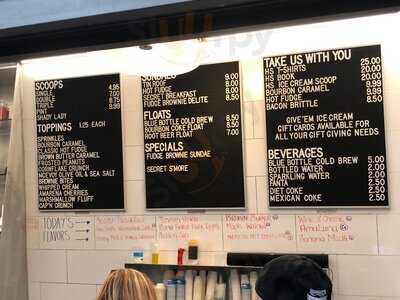 SCOOPS
SINGLE 4.95
DOUBLE 7.00
TRIPLE 8.75
PINT 9.99
SHADY LADY
TOPPINGS 1.25 EACH
SPRINKLES
BOURBON CARAMEL
CLASSIC HOT FUDGE
BROWN BUTTER CARAMEL
FROSTED PEANUTS
CORNFLAKE CRUNCH
MCEVOY OLIVE OIL & SEA SALT
BROWNIE BITES
WHIPPED CREAM
AMARENA CHERRIES
MARSHMALLOW FLUFF
CAP'N CRUNCH
SUNDAES
TIN ROOF 9.00
HOT FUDGE 8.00
SECRET BREAKFAST 9.00
FUDGE BROWNIE DELITE 9.50
FLOATS
BLUE BOTTLE COLD BREW 8.50
BOURBON COKE FLOAT 8.50
ROOT BEER FLOAT 7.00
SPECIALS
FUDGE BROWNIE SUNDAE
SECRET S'MORE
TAKE US WITH YOU
HS T-SHIRTS 25.00
HS BOOK 20.00
HS ICE CREAM SCOOP 20.00
BOURBON CARAMEL 9.99
HOT FUDGE 9.99
BACON BRITTLE 8.50
GIVE 'EM ICE CREAM
GIFT CARDS AVAILABLE FOR
ALL YOUR GIFT GIVING NEEDS
BEVERAGES
BLUE BOTTLE COLD BREW 5.00
BOTTLED WATER 2.00
SPARKLING WATER 2.00
FANTA 2.50
DIET COKE 2.50
MEXICAN COKE 2.50
TODAY'S
FLAVORS